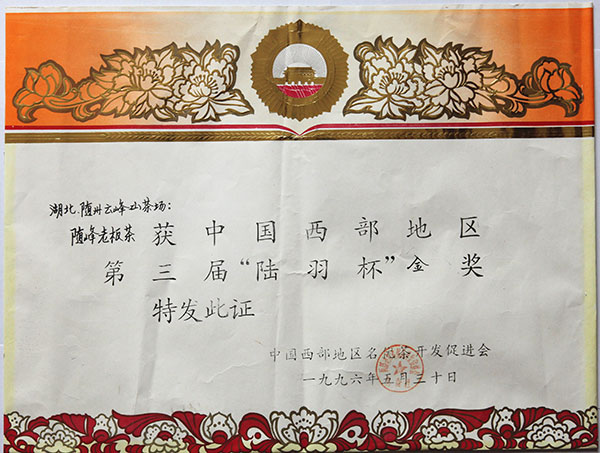 湖北随州云峰山茶场：
随峰老板茶 获中国西部地区
第三届“陆羽杯”金奖
特发此证
中国西部地区名优茶开发促进会
一九九六年五月三十日